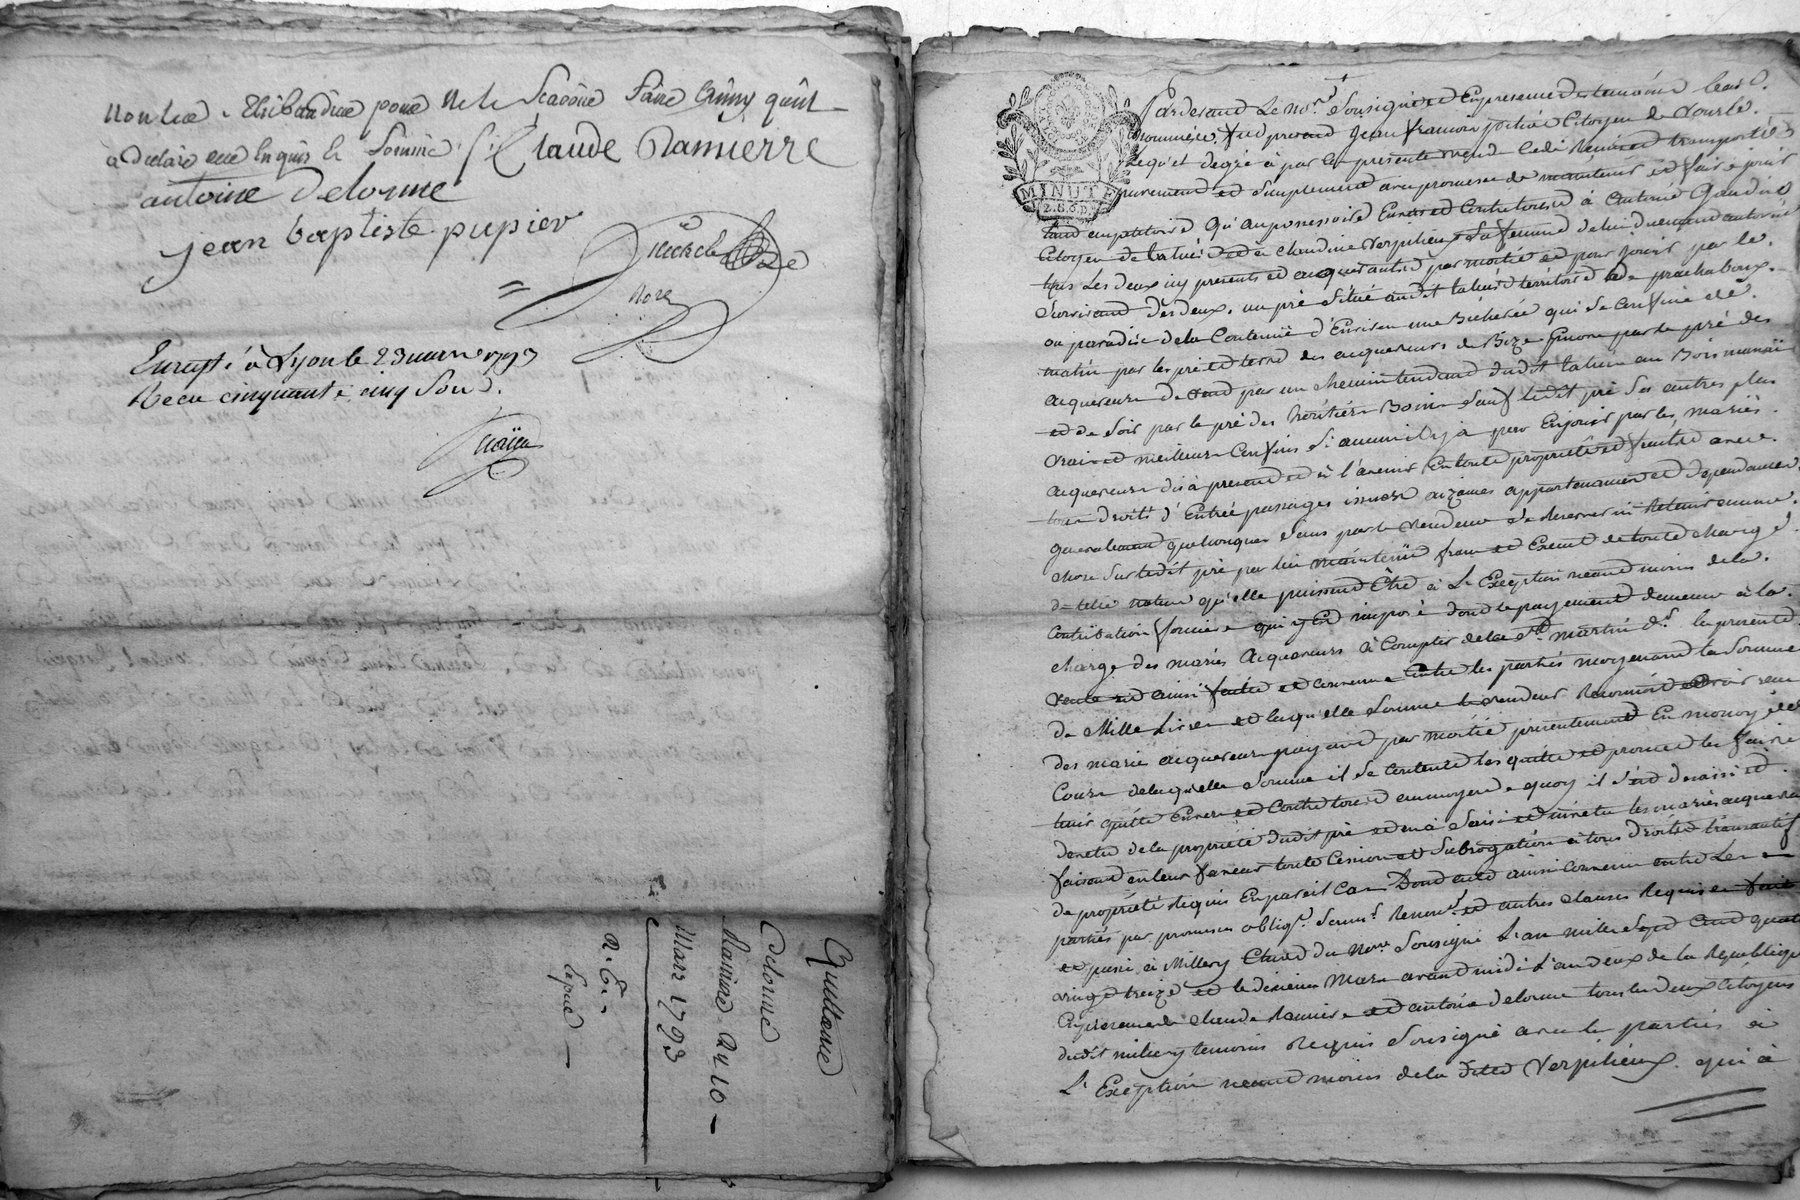 pour ne le Scavoire faire Ainsy quoil
a declaré enquis le Sommé Claude Ramierre
antoine Delorme
jean baptiste pupier
Enregté à Lyon le 23 mars 1793
Recu cinquante cinq Sous.
Quittance
Delorme
Ramiere du 10
Mars 1793
MINUTE
2.S.6.D.
Pardevand Le Nore Sousigné et En presence des temoins bas
nommés, fut presend jean francois Citoyen de
Lequel de gré à par les presente vend cede Remet et transporte
purement et Simplement avec promesse de maintenir et faire jouir
tand au petitoire Qu'au possessoire Envers et Contre tous à Antoine Gaudin
Citoyen de et à Claudine Verpilieux Sa femme de lui duement autorisé
les deux icy presents et acquerants par moitié et pour jouir par le
Survivand des deux, un pré Situé audit territoire de
ou paradis de la Contenue d'Environ une Bicherée qui Se Confine de
matin par les pré et terre des acquereurs de Bize par le pré des
acquereurs de par un chemin tendand dudit au Bois
et de Soir par le pré des héritiers Sauf ledit pré Ses autres plus
vrais et meilleurs Confins Si aucun il y à pour En jouir par les mariés
acquereurs dès à presend et à l'avenir En toute proprieté et fruits avec
tous droits d'Entrée passages issues aizances appartenances et dependances
generalement quelconques Sans par le Vendeur Se Reserver ni Retenir aucune
chose Sur ledit pré par lui maintenu franc et Exempt de toute charge
de telle nature qu'elle puissent Être à L'Exception neanmoins de la
Contribution fonciere qui y Est imposé dont le payement demeure à la
charge des mariés acquereurs à Compter de la St martin dr la presente
Vente est ainsi faite et convenue Entre les parties moyenand la Somme
de Mille Livres laquelle Somme le vendeur Reconnoit avoir reçu
des mariés acquereurs payand par moitié presentement En monoye de
Cours de laquelle Somme il Se Contente les quitte et promet les faire
tenir quitte Envers et Contre tous et au moyen de quoy il S'est dessaisi et
devetu de la proprieté dudit pré et en à Saisi et investu les mariés acquereurs
faisand en leur faveur toute Cession et Subrogation à tous droits
de proprieté Requis En pareil Cas Dont acte ainsi convenu entre Les
parties par promesses obligt Soumt Renont et autres clauses Requises fait
et passé à Millery Etude du Nore Sousigné L'an mil Sept Cend quatre
vingt treize et le dixieme Mars avand midi L'an deux de la Republique
En presence de Claude Ramiere et antoine delorme tous les deux Citoyens
dudit millery temoins Requis Sousigné avec les parties à
L'Exception neanmoins de la dite Verpilieux qui à